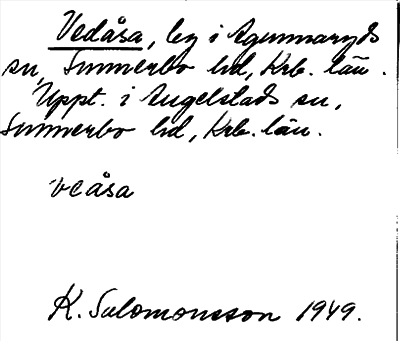 Vedåsa, by i Agunnaryds
sn, Sunnerbo hd, Krb. län.
Uppt. i Angelstads sn,
Sunnerbo hd, Krb. län.
veåsa
K. Salomonsson 1949.